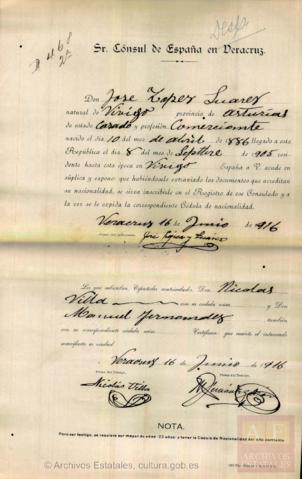 D 468
Desp
Sr. Cónsul de España en Veracruz.
Don José López Suarez
natural de Viñigo provincia de Asturias
de estado Casado y profesión Comerciante
nacido el día 10 del mes de Abril de 886 llegado a esta
República el día 8 del mes de Septbre de 905
dente hasta esta época en Viñigo España a V. acude en
súplica y expone que habiéndosele extraviado los documentos que acreditan
su nacionalidad, se sirva inscribirle en el Registro de ese Consulado y a
la vez se le expida la correspondiente Cédula de nacionalidad.
Veracruz 16 de Junio de 916
José López y Suarez
Los que subscriben, Españoles matriculados, Don Nicolás
Villa con su cédula núm. y Don
Manuel Fernandez también
con su correspondiente cédula núm. Certifican: que cuanto el interesado
manifiesta es verdad.
Veracruz 16 de Junio de 1916
Firma del Testigo, Firma del Testigo,
Nicolás Villa M. Fernández
NOTA.
Para ser testigo, se requiere ser mayor de edad 23 años y tener la Cédula de Nacionalidad del año corriente
ARCHIVOS ESTATALES
© Archivos Estatales, cultura.gob.es